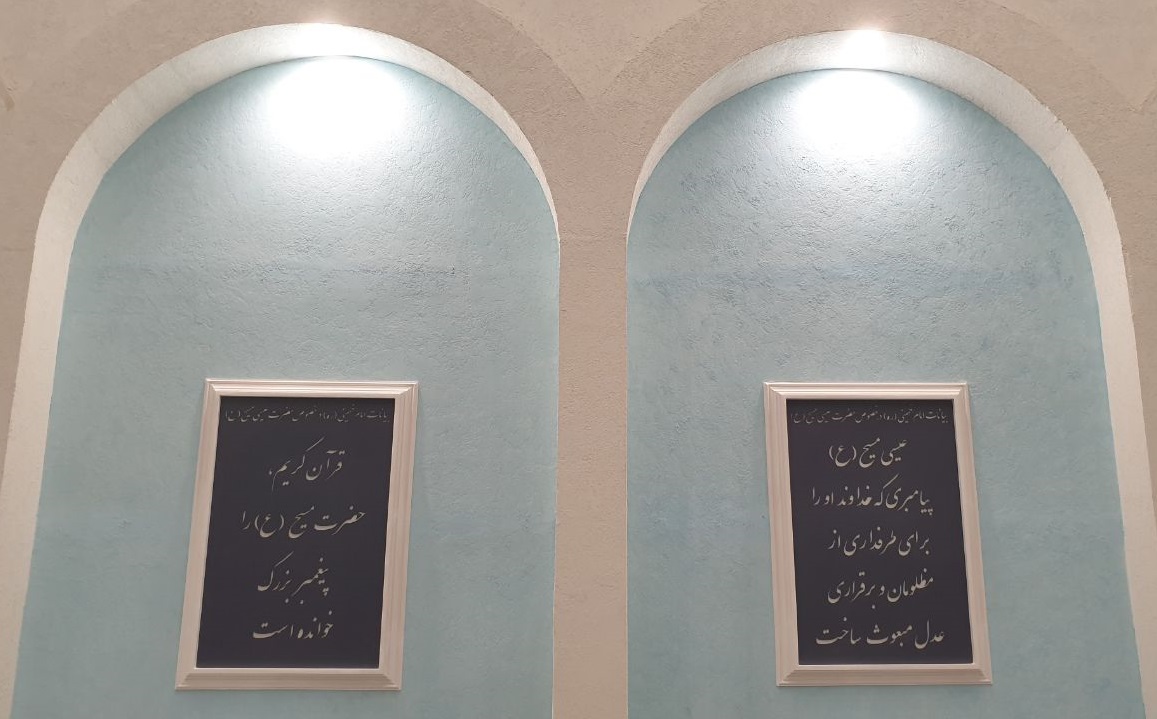 بیانات امام خمینی (ره) در خصوص حضرت عیسی مسیح (ع)
عیسی مسیح (ع)
پیامبری که خداوند او را
برای طرفداری از
مظلومان و برقراری
عدل مبعوث ساخت
بیانات امام خمینی (ره) در خصوص حضرت عیسی مسیح (ع)
قرآن کریم،
حضرت مسیح (ع) را
پیغمبر بزرگ
خوانده است